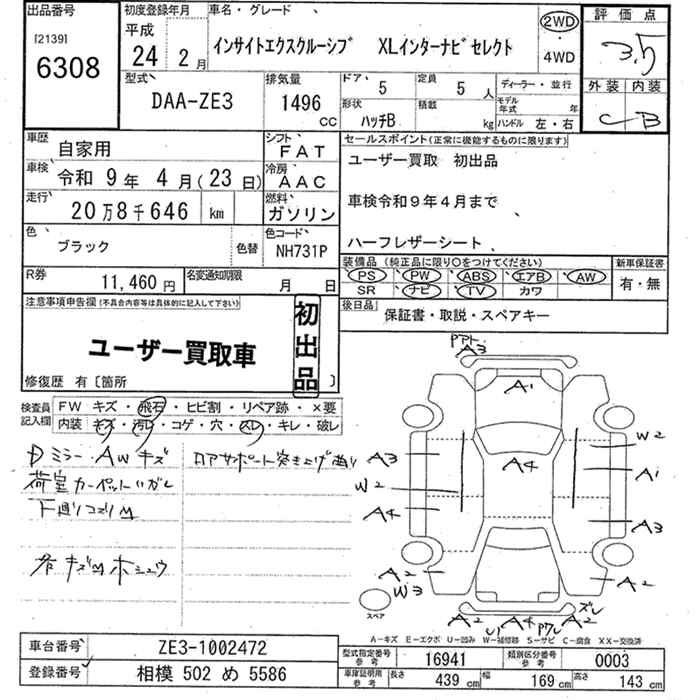 出品番号
[2139]
6308
初度登録年月
平成
24 2月
車名・グレード
インサイトエクスクルーシブ XLインターナビセレクト
2WD
・
4WD
評価点
3.5
外装 内装
C B
型式
DAA-ZE3
排気量
1496
CC
ドア
5
定員
5人
ディーラー・並行
形状
ハッチB
積載
kg
モデル年式 年
ハンドル 左・右
車歴
自家用
シフト
FAT
車検
令和 9年 4月(23日)
冷房
AAC
走行
20万8千646 km
燃料
ガソリン
色
ブラック
色替
色コード
NH731P
R券
11,460円
名変通知期限
月 日
セールスポイント(正常に機能するものに限ります)
ユーザー買取 初出品
車検令和9年4月まで
ハーフレザーシート
装備品(純正品に限り○をつけてください)
PS PW ABS エアB AW
SR ナビ TV カワ
新車保証書
有・無
後日品
保証書・取説・スペアキー
注意事項申告欄(不具合内容等は具体的に記入して下さい)
ユーザー買取車
初出品
修復歴 有〔箇所 〕
検査員
記入欄
FW キズ・飛石・ヒビ割・リペア跡・×要
内装 キズ・汚レ・コゲ・穴・スレ・キレ・破レ
Dミラー・AWキズ
荷室カーペットハガレ
下廻リコスリM
各キズM ホシュウ
ロアサポート突き上げ曲り
A3
A1
A3
W2
A4
A4
W2
A1
A3
A2
W3
A2
A2
A4
A2
ズレ
スペア
A-キズ E-エクボ U-凹み W-補修跡 S-サビ C-腐食 XX-交換済
車台番号
ZE3-1002472
登録番号
相模 502 め 5586
型式指定番号
参考
16941
類別区分番号
参考
0003
車庫証明用
参考
長さ
439 cm
幅
169 cm
高さ
143 cm